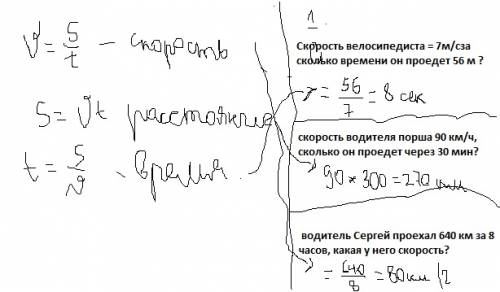 ϑ = S/t - скорость
S = ϑt расстояние
t = S/ϑ - время
1
Скорость велосипедиста = 7м/сза
сколько времени он проедет 56 м ?
= 56/7 = 8 сек
скорость водителя порша 90 км/ч,
сколько он проедет через 30 мин?
90 * 300 = 270 км
водитель Сергей проехал 640 км за 8
часов, какая у него скорость?
= 640/8 = 80 км/ч